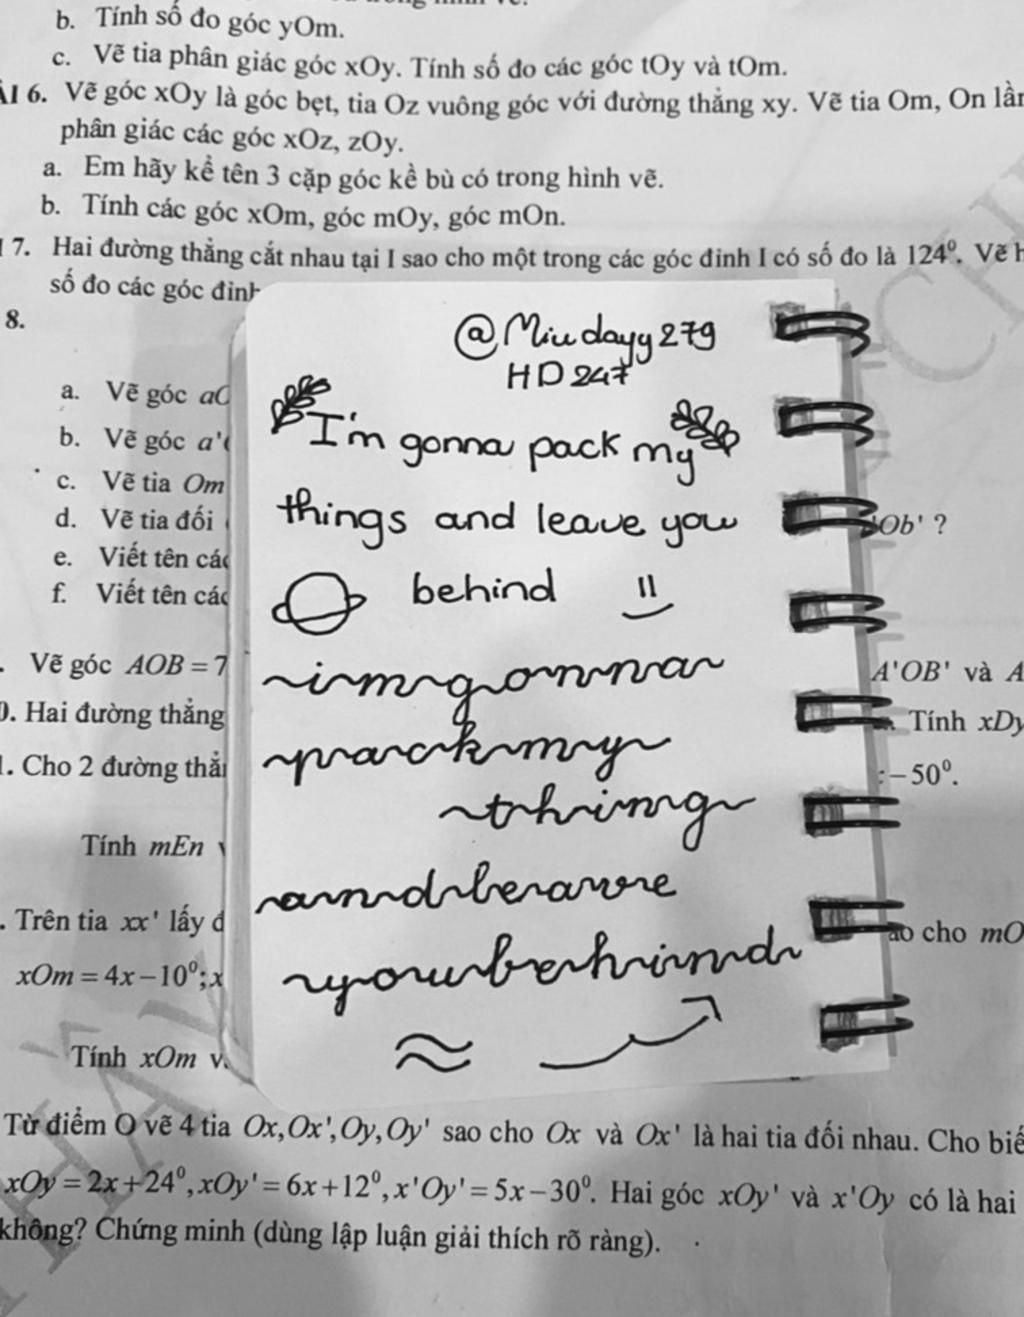 b. Tính số đo góc yOm.
c. Vẽ tia phân giác góc xOy. Tính số đo các góc tOy và tOm.
6. Vẽ góc xOy là góc bẹt, tia Oz vuông góc với đường thẳng xy. Vẽ tia Om, On
phân giác các góc xOz, zOy.
a. Em hãy kể tên 3 cặp góc kề bù có trong hình vẽ.
b. Tính các góc xOm, góc mOy, góc mOn.
7. Hai đường thẳng cắt nhau tại I sao cho một trong các góc đỉnh I có số đo là 124⁰. Vẽ
số đo các góc đỉnh
8.
@Miudayy279
HD247
I'm gonna pack my
things and leave you
behind
imgonna
packmy
thing
andleave
youbehind
a. Vẽ góc
b. Vẽ góc
c. Vẽ tia Om
d. Vẽ tia đối
e. Viết tên các
f. Viết tên các
Ob' ?
Vẽ góc AOB = 7
A'OB' và A
0. Hai đường thẳng
Tính xDy
1. Cho 2 đường
-50⁰.
Tính mEn
. Trên tia xx' lấy
cho mO
xOm = 4x-10⁰;x
Tính xOm
Từ điểm O vẽ 4 tia Ox,Ox',Oy,Oy' sao cho Ox và Ox' là hai tia đối nhau. Cho
xOy = 2x+24⁰,xOy'=6x+12⁰,x'Oy'=5x-30⁰. Hai góc xOy' và x'Oy có là hai
không? Chứng minh (dùng lập luận giải thích rõ ràng).